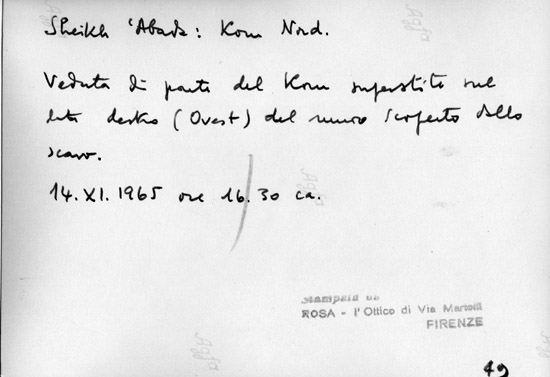 Sheikh 'Abada: Kom Nord.
Veduta di parte del Kom superstite sul
lato destro (Ovest) del muro scoperto dallo
scavo.
14.XI.1965 ore 16.30 ca.
Stampata da
ROSA - l'Ottico di Via Martelli
FIRENZE
49
Agfa
Agfa
Agfa
Agfa